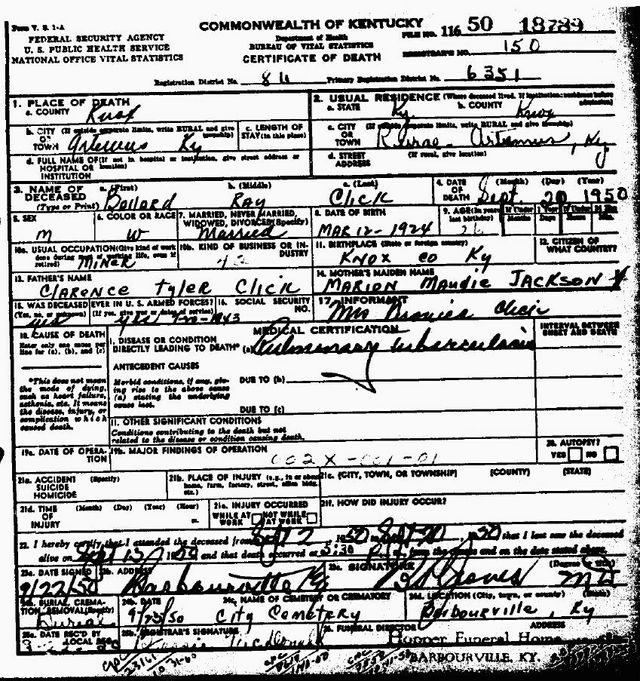 Form V. S. 1-A
COMMONWEALTH OF KENTUCKY
FEDERAL SECURITY AGENCY
U. S. PUBLIC HEALTH SERVICE
NATIONAL OFFICE VITAL STATISTICS
Department of Health
BUREAU OF VITAL STATISTICS
CERTIFICATE OF DEATH
FILE NO. 116 50 18789
REGISTRAR'S NO. 150
Registration District No. 84 Primary Registration District No. 6351
1. PLACE OF DEATH
a. COUNTY Knox
2. USUAL RESIDENCE (Where deceased lived. If institution: residence before admission)
a. STATE Ky b. COUNTY Knox
b. CITY (If outside corporate limits, write RURAL and give township)
OR TOWN Artemus Ky
c. LENGTH OF STAY (in this place)
c. CITY (If outside corporate limits, write RURAL and give township)
OR TOWN Rural Artemus, Ky
d. FULL NAME OF (If not in hospital or institution, give street address or location)
HOSPITAL OR INSTITUTION
d. STREET ADDRESS (If rural, give location)
3. NAME OF DECEASED (Type or Print)
a. (First) Ballard b. (Middle) Ray c. (Last) Click
4. DATE OF DEATH (Month) (Day) (Year) Sept. 20 1950
5. SEX M
6. COLOR OR RACE W
7. MARRIED, NEVER MARRIED, WIDOWED, DIVORCED (Specify) Married
8. DATE OF BIRTH MAR 12-1924
9. AGE (In years last birthday) 26
If Under 1 Year Months Days
If Under 24 Hrs. Hours Min.
10a. USUAL OCCUPATION (Give kind of work done during most of working life, even if retired) MINER
10b. KIND OF BUSINESS OR INDUSTRY
11. BIRTHPLACE (State or foreign country) KNOX CO KY
12. CITIZEN OF WHAT COUNTRY?
13. FATHER'S NAME
CLARENCE TYLER CLICK
14. MOTHER'S MAIDEN NAME
MARION MAUDIE JACKSON
15. WAS DECEASED EVER IN U. S. ARMED FORCES?
(Yes, no, or unknown) (If yes, give war or dates of service)
yes
16. SOCIAL SECURITY NO.
17. INFORMANT
Mrs Click
18. CAUSE OF DEATH
Enter only one cause per line for (a), (b), and (c)
MEDICAL CERTIFICATION
INTERVAL BETWEEN ONSET AND DEATH
I. DISEASE OR CONDITION
DIRECTLY LEADING TO DEATH* (a) Pulmonary tuberculosis
*This does not mean the mode of dying, such as heart failure, asthenia, etc. It means the disease, injury, or complication which caused death.
ANTECEDENT CAUSES
Morbid conditions, if any, giving rise to the above cause (a) stating the underlying cause last.
DUE TO (b)
DUE TO (c)
II. OTHER SIGNIFICANT CONDITIONS
Conditions contributing to the death but not related to the disease or condition causing death.
19a. DATE OF OPERATION
19b. MAJOR FINDINGS OF OPERATION
002X-001-01
20. AUTOPSY?
YES NO
21a. ACCIDENT SUICIDE HOMICIDE (Specify)
21b. PLACE OF INJURY (e.g., in or about home, farm, factory, street, office bldg., etc.)
21c. (CITY, TOWN, OR TOWNSHIP) (COUNTY) (STATE)
21d. TIME OF INJURY (Month) (Day) (Year) (Hour)
21e. INJURY OCCURRED
WHILE AT WORK NOT WHILE AT WORK
21f. HOW DID INJURY OCCUR?
22. I hereby certify that I attended the deceased from Sept 2, 1950 Sept 20, 1950 that I last saw the deceased
alive on Sept 1950 and that death occurred at 5:30 P m., from the causes and on the date stated above.
23a. DATE SIGNED 9/22/50
23b. ADDRESS Barbourville Ky
23c. SIGNATURE (Degree or title) MD
24a. BURIAL, CREMATION, REMOVAL (Specify) Burial
24b. DATE 9/23/50
24c. NAME OF CEMETERY OR CREMATORY CITY CEMETERY
24d. LOCATION (City, town, or county) (State) Barbourville, Ky
25a. DATE REC'D BY LOCAL REG.
25b. REGISTRAR'S SIGNATURE
25. FUNERAL DIRECTOR ADDRESS
Hopper Funeral Home
BARBOURVILLE, KY.